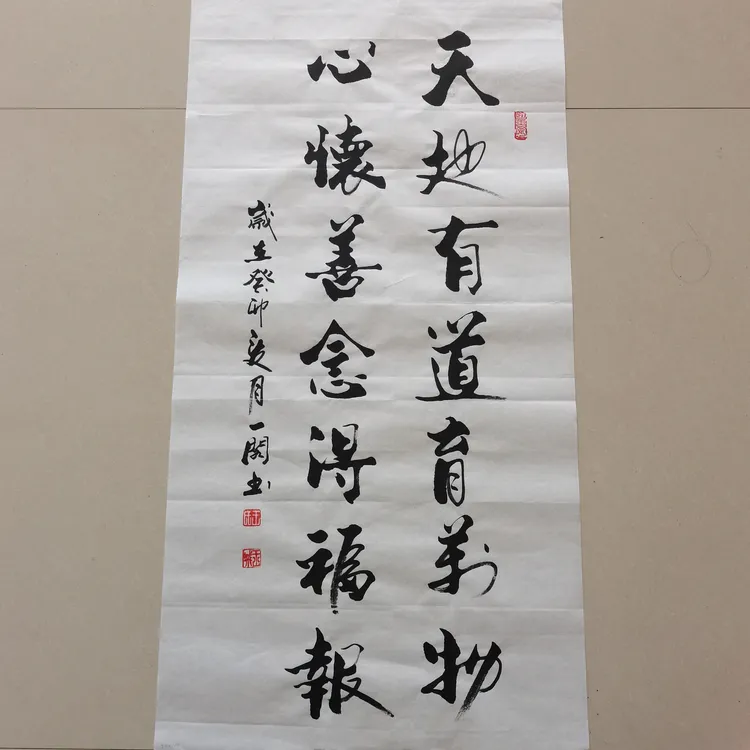 天地有道育萬物
心懷善念得福報
歲在癸卯夏月一閣书